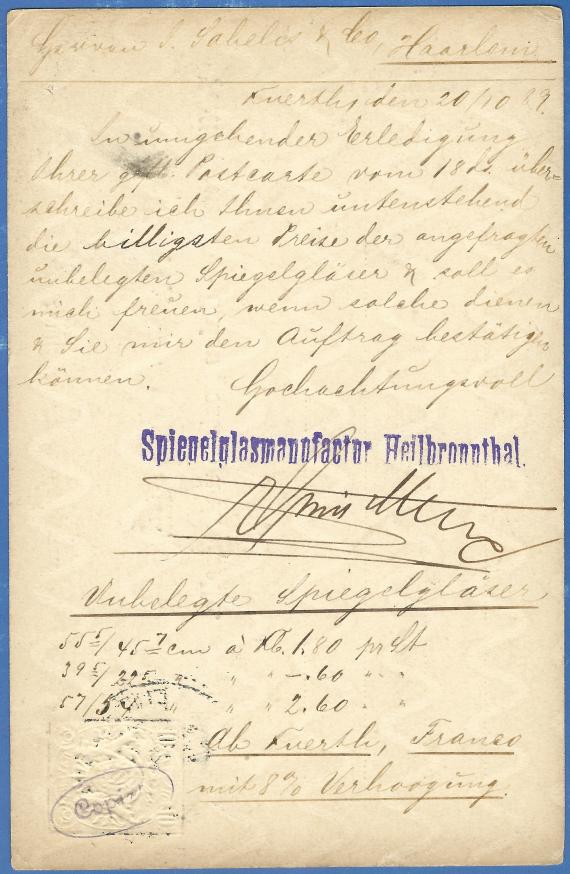 Herren J. Sabelis & Co, Haarlem
Fuerth, den 20/10 89.
In umgehender Erledigung
Ihrer gefl. Postcarte vom 18 ds. über=
schreibe ich Ihnen untenstehend
die billigsten Preise der angefragten
unbelegten Spiegelgläser & soll es
mich freuen, wenn solche dienen
& Sie mir den Auftrag bestätigen
können. Hochachtungsvoll
Spiegelglasmanufactur Heilbronnthal.
Unbelegte Spiegelgläser
55 5/45 7 cm à M. 1.80 pr St
39 5/225 " " " -.60 " "
57/5 " " 2.60 " "
Ab Fuerth, Franco
mit 8% Verhoogung.
Copie